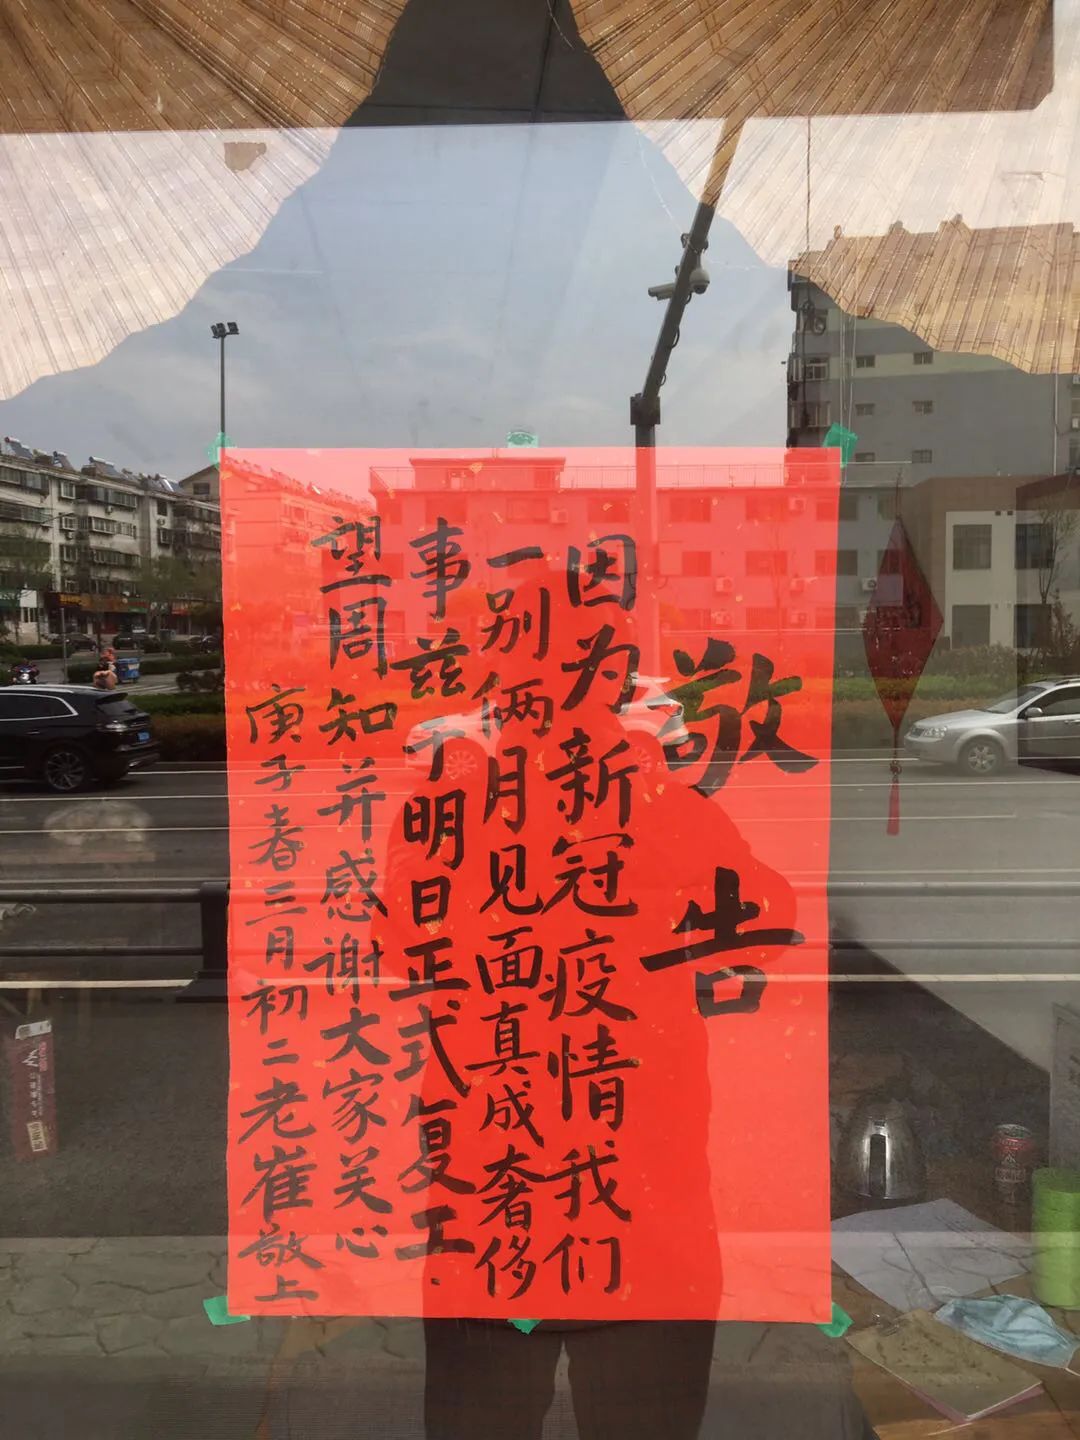 敬告
因为新冠疫情我们
一别俩月见面真成奢侈
事兹于明日正式复工
望周知并感谢大家关心
庚子春三月初二老崔敬上